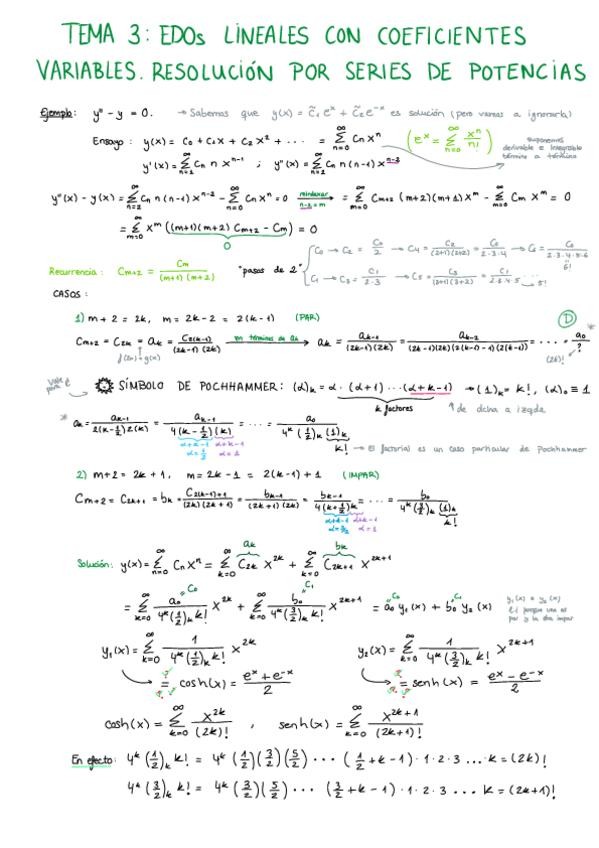 TEMA 3: EDOs LINEALES CON COEFICIENTES
VARIABLES. RESOLUCIÓN POR SERIES DE POTENCIAS
Ejemplo: y'' - y = 0. → Sabemos que y(x) = C̃₁eˣ + C̃₂e⁻ˣ es solución (pero vamos a ignorarla)
Ensayo: y(x) = C₀ + C₁x + C₂x² + ··· = ∑_{n=0}^∞ Cₙxⁿ (eˣ = ∑_{n=0}^∞ xⁿ/n!) suponemos derivable e integrable término a término
y'(x) = ∑_{n=1}^∞ Cₙ n xⁿ⁻¹ ; y''(x) = ∑_{n=2}^∞ Cₙ n (n-1) xⁿ⁻²
y''(x) - y(x) = ∑_{n=2}^∞ Cₙ n (n-1) xⁿ⁻² - ∑_{n=0}^∞ Cₙxⁿ = 0 reindexar n-2=m → = ∑_{m=0}^∞ Cₘ₊₂ (m+2)(m+1) xᵐ - ∑_{m=0}^∞ Cₘ xᵐ = 0
= ∑_{m=0}^∞ xᵐ ((m+1)(m+2) Cₘ₊₂ - Cₘ) = 0
0
Recurrencia: Cₘ₊₂ = Cₘ/((m+1)(m+2)) "pasos de 2"
C₀ → C₂ = C₀/2 → C₄ = C₂/((2+1)(2+2)) = C₀/(2·3·4) → C₆ = C₀/(2·3·4·5·6) 6!
C₁ → C₃ = C₁/(2·3) → C₅ = C₃/((3+1)(3+2)) = C₁/(2·3·4·5) ··· 5!
CASOS:
1) m+2 = 2k, m = 2k-2 = 2(k-1) (PAR)
Cₘ₊₂ = C₂ₖ = aₖ = C₂₍ₖ₋₁₎/((2k-1)(2k)) → aₖ = aₖ₋₁/((2k-1)(2k)) = aₖ₋₂/((2k-1)(2k)(2(k-1)-1)(2(k-1))) = ··· = a₀/? (2k)!
SÍMBOLO DE POCHHAMMER: (α)ₖ = α·(α+1)···(α+k-1) → (1)ₖ = k!, (α)₀ ≡ 1
k factores de dcha a izqda
* aₖ = aₖ₋₁/(2(k-½)2(k)) = aₖ₋₁/(4(k-½)(k)) = ··· = a₀/(4ᵏ(½)ₖ(1)ₖ)
α+k-1 α+k-1
α=½ α=1
k! → El factorial es un caso particular de Pochhammer
2) m+2 = 2k+1, m = 2k-1 = 2(k-1)+1 (IMPAR)
Cₘ₊₂ = C₂ₖ₊₁ = bₖ = C₂₍ₖ₋₁₎₊₁/((2k)(2k+1)) = bₖ₋₁/((2k+1)(2k)) = bₖ₋₁/(4(k+½)k) = ··· = b₀/(4ᵏ(3/2)ₖ(1)ₖ)
α+k-1 α+k-1 k!
α=3/2 α=1
Solución: y(x) = ∑_{n=0}^∞ Cₙxⁿ = ∑_{k=0}^∞ C₂ₖ x²ᵏ + ∑_{k=0}^∞ C₂ₖ₊₁ x²ᵏ⁺¹
aₖ bₖ
= ∑_{k=0}^∞ a₀/(4ᵏ(½)ₖ k!) x²ᵏ + ∑_{k=0}^∞ b₀/(4ᵏ(3/2)ₖ k!) x²ᵏ⁺¹ = a₀ y₁(x) + b₀ y₂(x)
C₀ C₁ C₀ C₁
porque una es par y la otra impar
y₁(x) = ∑_{k=0}^∞ 1/(4ᵏ(½)ₖ k!) x²ᵏ y₂(x) = ∑_{k=0}^∞ 1/(4ᵏ(3/2)ₖ k!) x²ᵏ⁺¹
¿? = cosh(x) = (eˣ + e⁻ˣ)/2 ¿? = senh(x) = (eˣ - e⁻ˣ)/2
cosh(x) = ∑_{k=0}^∞ x²ᵏ/(2k)! , senh(x) = ∑_{k=0}^∞ x²ᵏ⁺¹/(2k+1)!
En efecto: 4ᵏ(½)ₖ k! = 4ᵏ(½)(3/2)(5/2) ··· (½+k-1)·1·2·3 ... k = (2k)!
4ᵏ(3/2)ₖ k! = 4ᵏ(3/2)(5/2) ··· (3/2+k-1)·1·2·3 ... k = (2k+1)!